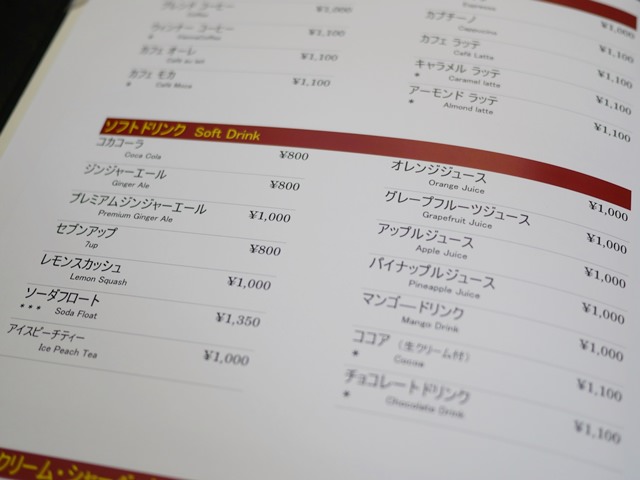 フレンチ コーヒー ¥1,000
Coffee
ウィンナー コーヒー ¥1,100
カフェ オーレ ¥1,100
Café au lait
カフェ モカ ¥1,100
* Café Moca
Espresso ¥1,000
カプチーノ
Cappuccino ¥1,100
カフェ ラッテ
Café Latte ¥1,100
キャラメル ラッテ
* Caramel latte ¥1,100
アーモンド ラッテ
* Almond latte ¥1,100
ソフトドリンク Soft Drink
コカコーラ ¥800
Coca Cola
ジンジャーエール ¥800
Ginger Ale
プレミアムジンジャーエール ¥1,000
Premium Ginger Ale
セブンアップ ¥800
7up
レモンスカッシュ ¥1,000
Lemon Squash
ソーダフロート ¥1,350
*** Soda Float
アイスピーチティー ¥1,000
Ice Peach Tea
オレンジジュース
Orange Juice ¥1,000
グレープフルーツジュース
Grapefruit Juice ¥1,000
アップルジュース
Apple Juice ¥1,000
パイナップルジュース
Pineapple Juice ¥1,000
マンゴードリンク
Mango Drink ¥1,000
ココア (生クリーム付)
* Cocoa ¥1,100
チョコレートドリンク
* Chocolate Drink ¥1,100
クリーム・シャーベット